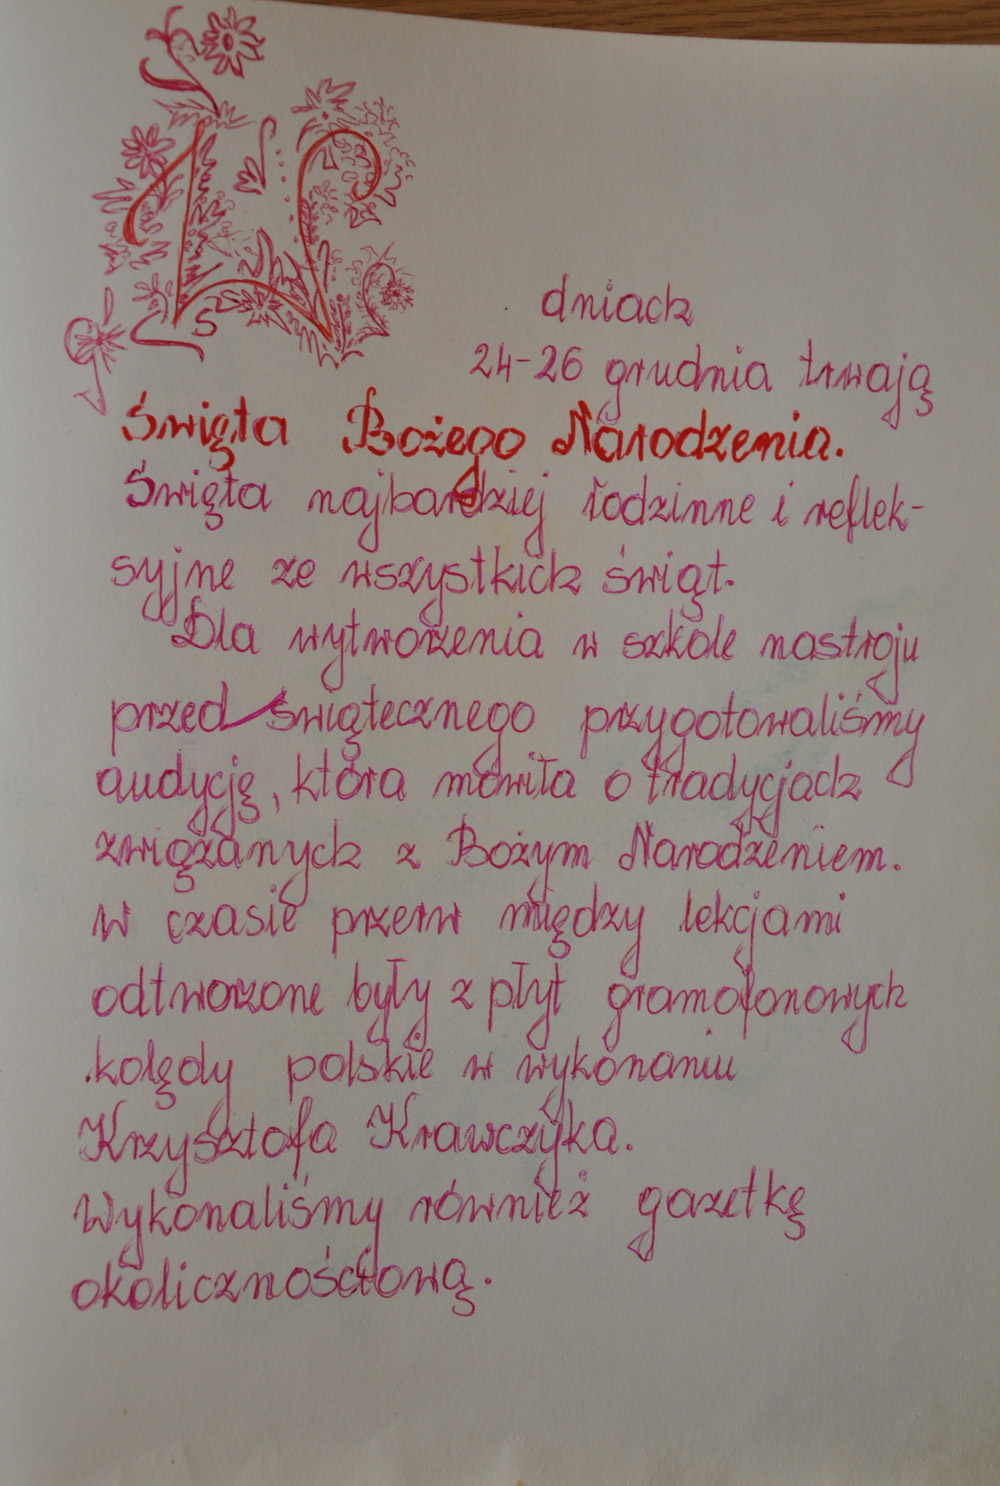 W dniach
24-26 grudnia trwają
Święta Bożego Narodzenia.
Święta najbardziej rodzinne i reflek-
syjne ze wszystkich świąt.
Dla wytworzenia w szkole nastroju
przedświątecznego przygotowaliśmy
audycję, która mówiła o tradycjach
związanych z Bożym Narodzeniem.
W czasie przerw między lekcjami
odtworzone były z płyt gramofonowych
kolędy polskie w wykonaniu
Krzysztofa Krawczyka.
Wykonaliśmy również gazetkę
okolicznościową.